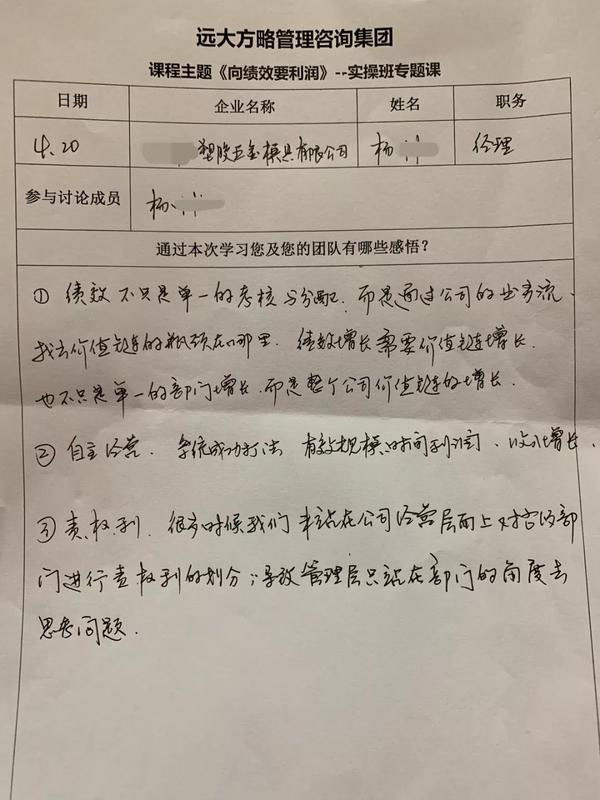 远大方略管理咨询集团
课程主题《向绩效要利润》--实操班专题课
日期 企业名称 姓名 职务
4.20 塑胶五金模具有限公司 杨 经理
参与讨论成员 杨
通过本次学习您及您的团队有哪些感悟？
① 绩效不只是单一的考核与分配，而是通过公司的业务流、
找出价值链的瓶颈在哪里．绩效增长需要价值链增长．
也不只是单一的部门增长．而是整个公司价值链的增长．
② 自主经营．系统成功打法 有效规模 时间利润、收入增长．
③ 责权利．很多时候我们未站在公司经营层面上对各的部
门进行责权利的划分；导致管理层只站在部门的角度去
思考问题．